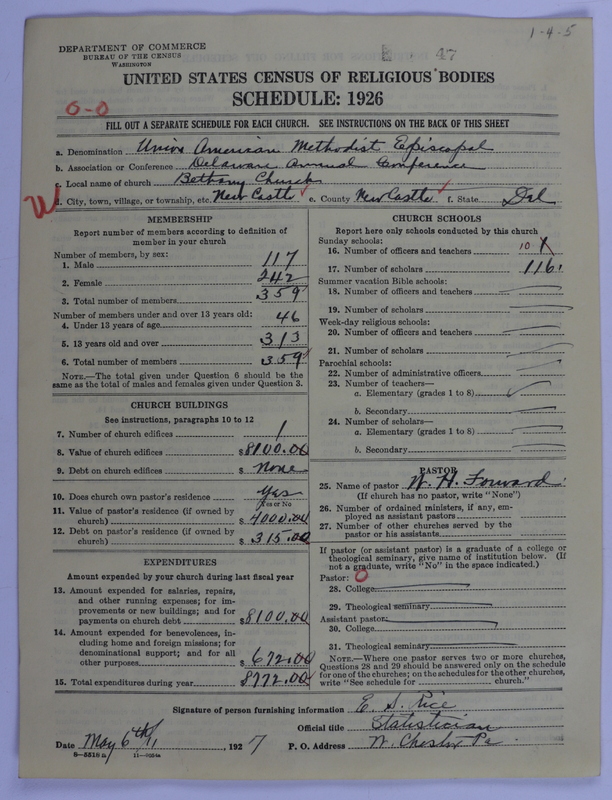 1-4-5
DEPARTMENT OF COMMERCE
BUREAU OF THE CENSUS
WASHINGTON
47
UNITED STATES CENSUS OF RELIGIOUS BODIES
SCHEDULE: 1926
0-0
FILL OUT A SEPARATE SCHEDULE FOR EACH CHURCH. SEE INSTRUCTIONS ON THE BACK OF THIS SHEET
a. Denomination Union American Methodist Episcopal
b. Association or Conference Delaware Annual Conference
c. Local name of church Bethany Church
d. City, town, village, or township, etc. New Castle e. County New Castle f. State Del
MEMBERSHIP
Report number of members according to definition of member in your church
Number of members, by sex:
1. Male 117
2. Female 242
3. Total number of members 359
Number of members under and over 13 years old:
4. Under 13 years of age 46
5. 13 years old and over 313
6. Total number of members 359
NOTE.—The total given under Question 6 should be
same as the total of males and females given under Question 3.
CHURCH BUILDINGS
See instructions, paragraphs 10 to 12
7. Number of church edifices 1
8. Value of church edifices $8100.00
9. Debt on church edifices $ None
10. Does church own pastor's residence Yes
Yes or No
11. Value of pastor's residence (if owned by
church) $ 4000.00
12. Debt on pastor's residence (if owned by
church) $ 315.00
EXPENDITURES
Amount expended by your church during last fiscal year
13. Amount expended for salaries, repairs,
and other running expenses; for im-
provements or new buildings; and for
payments on church debt $8100.00
14. Amount expended for benevolences, in-
cluding home and foreign missions; for
denominational support; and for all
other purposes $ 672.00
15. Total expenditures during year $8772.00
CHURCH SCHOOLS
Report here only schools conducted by this church
Sunday schools:
16. Number of officers and teachers 10
17. Number of scholars 116
Summer vacation Bible schools:
18. Number of officers and teachers
19. Number of scholars
Week-day religious schools:
20. Number of officers and teachers
21. Number of scholars
Parochial schools:
22. Number of administrative officers
23. Number of teachers—
a. Elementary (grades 1 to 8)
b. Secondary
24. Number of scholars—
a. Elementary (grades 1 to 8)
b. Secondary
PASTOR
25. Name of pastor W. H. Forward
(If church has no pastor, write "None")
26. Number of ordained ministers, if any, em-
ployed as assistant pastors
27. Number of other churches served by the
pastor or his assistants
If pastor (or assistant pastor) is a graduate of a college or
theological seminary, give name of institution below. (If
not a graduate, write "No" in the space indicated.)
Pastor: 0
28. College
29. Theological seminary
Assistant pastor:
30. College
31. Theological seminary
NOTE.—Where one pastor serves two or more churches,
Questions 28 and 29 should be answered only on the schedule
for one of the churches; on the schedules for the other churches,
write "See schedule for church."
Signature of person furnishing information E. S. Rice
Official title Statistician
Date May 6th, 1927 P. O. Address W. Chester Pa
8—5518a 11—9054a